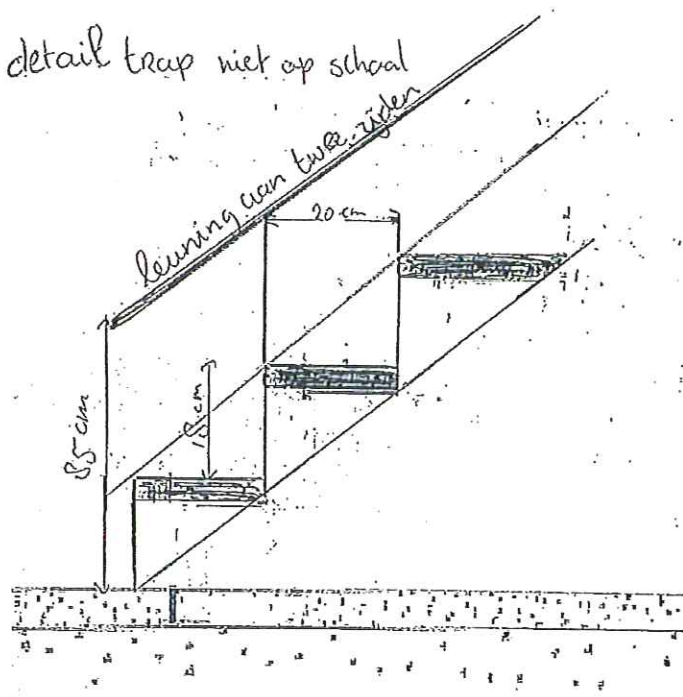 detail trap niet op schaal
leuning aan twee zijden
20 cm
18 cm
85 cm